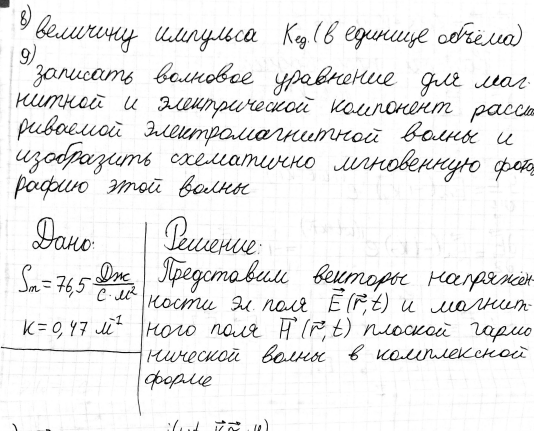 8) величину импульса Kед. (в единице объёма)
9)
записать волновое уравнение для маг-
нитной и электрической компонент рассм
риваемой электромагнитной волны и
изобразить схематично мгновенную фото
рафию этой волны
Дано:
Sm = 76,5 Дж/с·м²
к = 0,47 м⁻¹
Решение:
Представим векторы напряжён-
ности эл. поля E⃗(r⃗,t) и магнит-
ного поля H⃗(r⃗,t) плоской гармо
нической волны в комплексной
форме